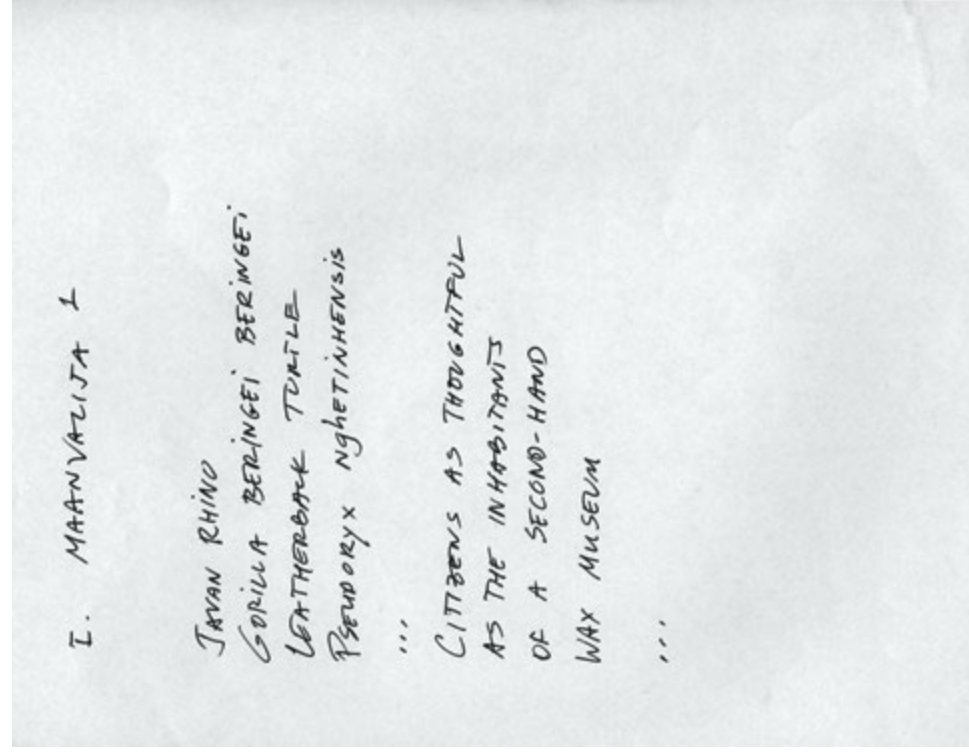 I. MAANVALITA 1
JAVAN RHINO
GORILLA BERINGEI BERINGEI
LEATHERBACK TURTLE
PSEUDORYX NGHETINHENSIS
...
CITIZENS AS THOUGHTFUL
AS THE INHABITANTS
OF A SECOND-HAND
WAX MUSEUM
...